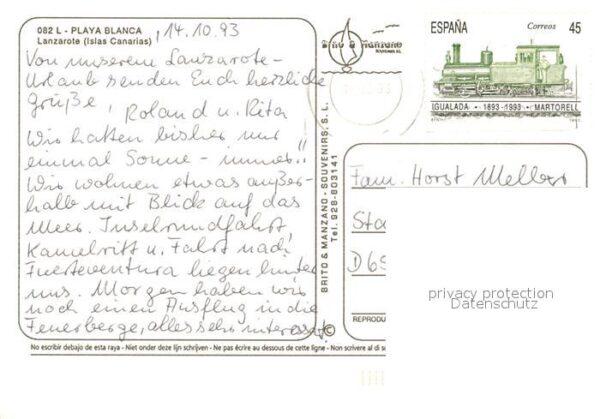 082 L - PLAYA BLANCA
Lanzarote (Islas Canarias)
14.10.93
Von unserem Lanzarote-
Urlaub senden Euch herzliche
Grüße, Roland u. Rita
Wir hatten bisher nur
einmal Sonne - immer!!
Wir wohnen etwas außer-
halb mit Blick auf das
Meer. Inselrundfahrt,
Kamelritt u. Fahrt nach
Fuerteventura liegen hinter
uns. Morgen haben wir
noch einen Ausflug in die
Feuerberge, alles sehr interessant
No escribir debajo de esta raya - Niet onder deze lijn schrijven - Ne pas écrire au dessous de cette ligne - Non scrivere al di s
Brito & Manzano
SOUVENIRS S.L.
BRITO & MANZANO - SOUVENIRS, S. L.
Tel. 928-803141
ESPAÑA Correos 45
IGUALADA - 1893-1993 - MARTORELL
Fam. Horst
Sta
D 69
REPRODU
©
privacy protection
Datenschutz